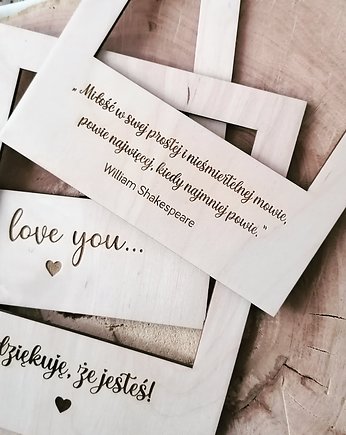 „Miłość w swej prostej i nieśmiertelnej mowie,
powie najwięcej, kiedy najmniej powie.”
William Shakespeare
love you...
dziękuję, że jesteś!